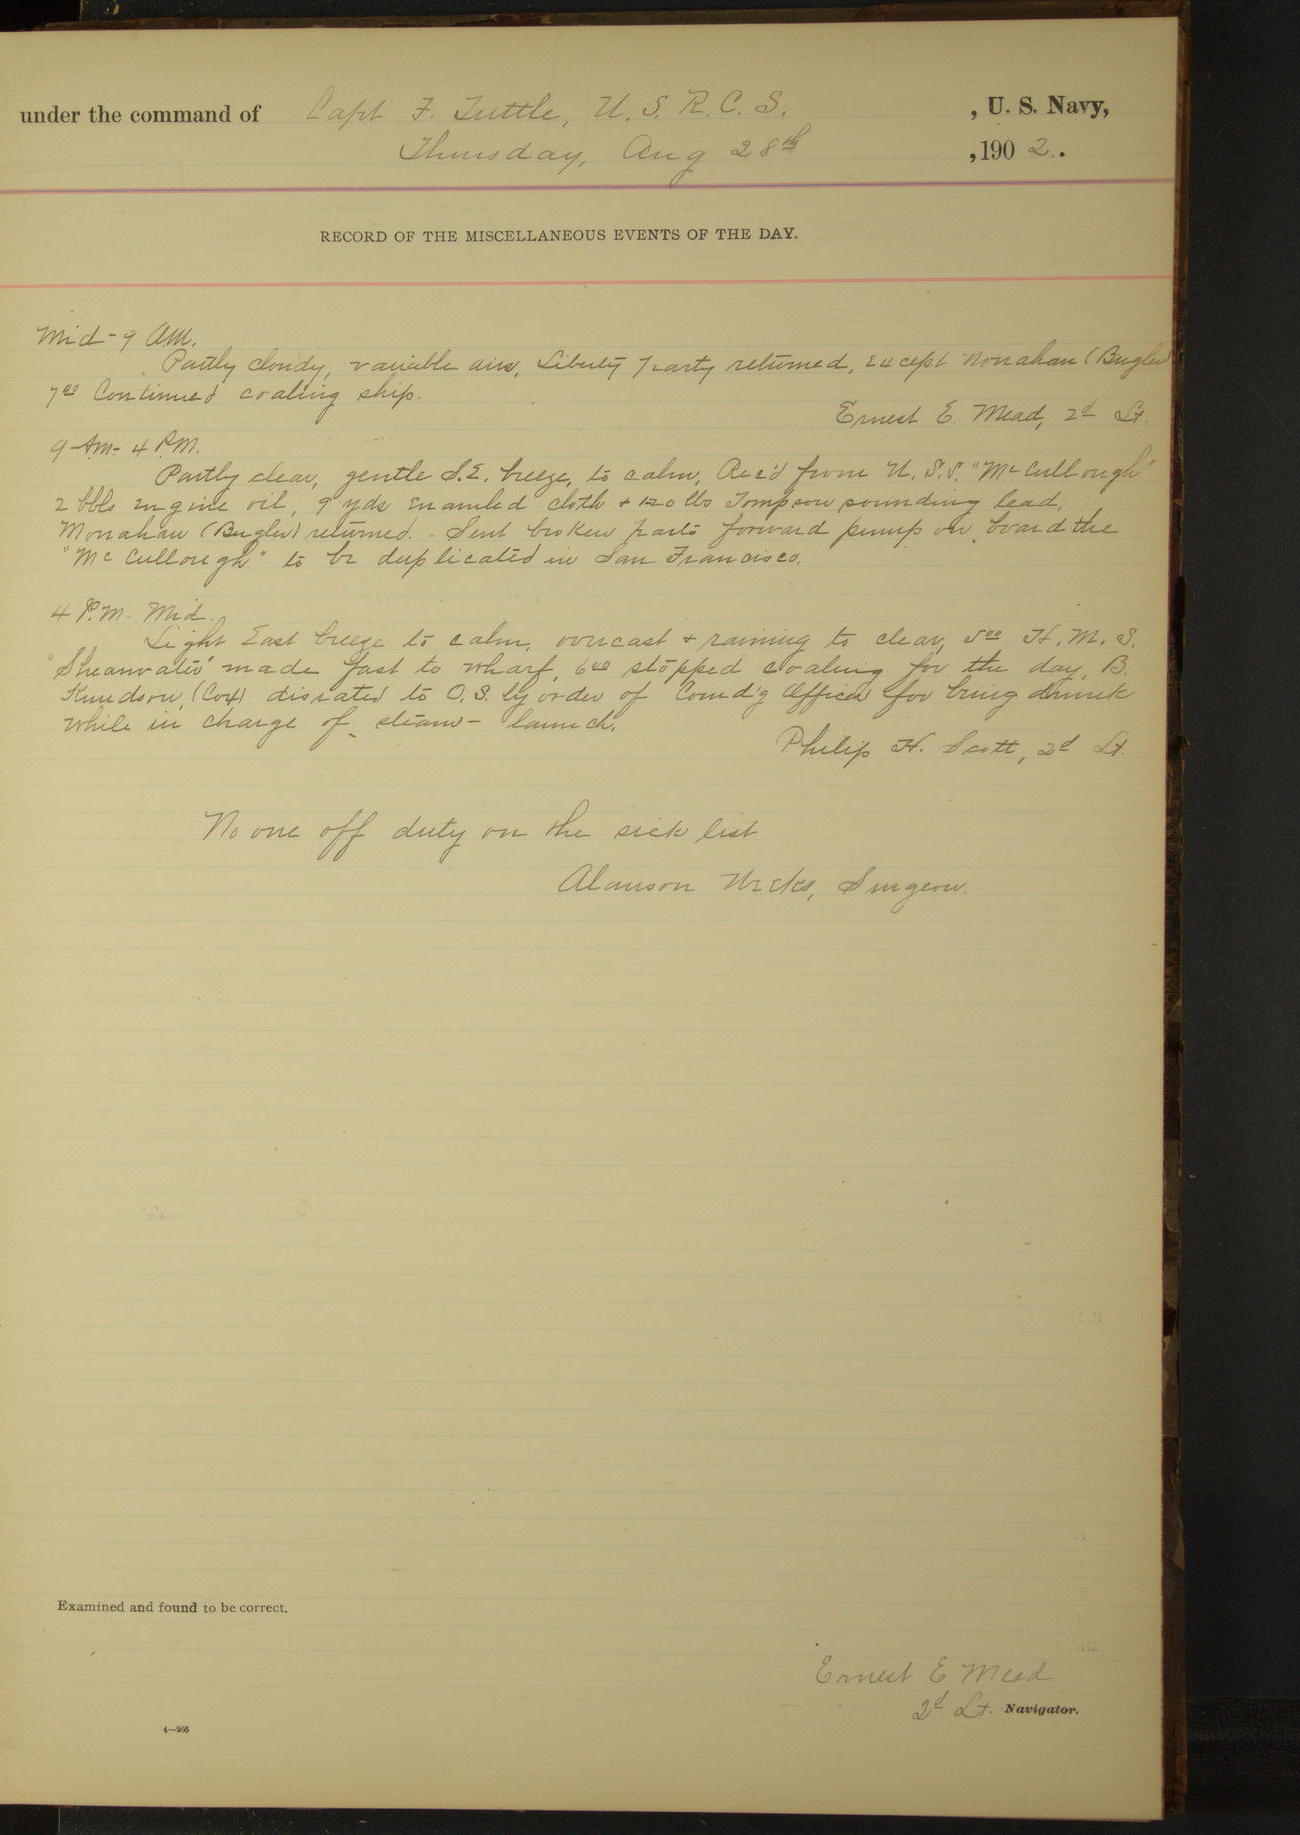 under the command of Capt F. Tuttle, U. S. R. C. S. , U. S. Navy,
Thursday, Aug 28th , 190 2 .
RECORD OF THE MISCELLANEOUS EVENTS OF THE DAY.
Mid - 9 A.M.
Partly cloudy, variable airs, Liberty party returned, except Monahan (Bugler)
7 00 Continued coaling ship.
Ernest E. Mead, 2d Lt.
9 A.M. - 4 P.M.
Partly clear, gentle S.E. breeze, to calm, Rec'd from U. S. S. "McCullough"
2 bbls engine oil, 9 yds enamled cloth + 120 lbs Tompson sounding lead.
Monahan (Bugler) returned. - Sent broken parts forward pump on board the
"McCullough" to be duplicated in San Francisco.
4 P.M. - Mid.
Light East breeze to calm, overcast + raining to clear, 5 00 H. M. S.
"Shearwater" made fast to wharf, 6 00 stopped coaling for the day, B.
Knudson, (Cox) disrated to O. S. by order of Comd'g Officer for being drunk
while in charge of steam - launch.
Philip H. Scott, 2d Lt.
No one off duty on the sick list
Alanson Weeks, Surgeon.
Examined and found to be correct.
Ernest E Mead
2d Lt. Navigator.
4—266